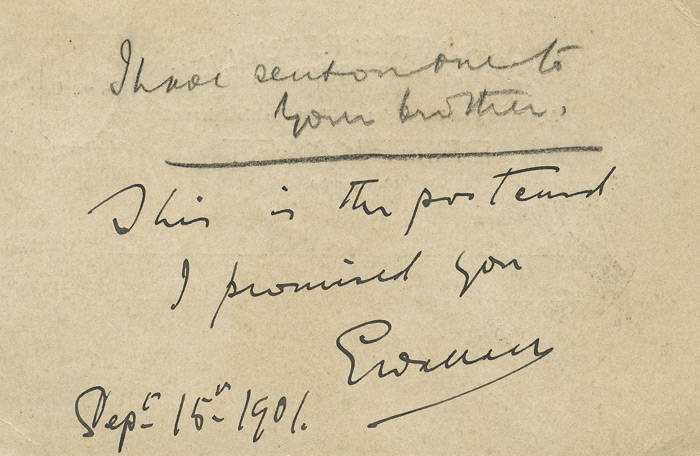 I have sent on one to
your brother.
This is the postcard
I promised you
EWallace
Sept 15th 1901.